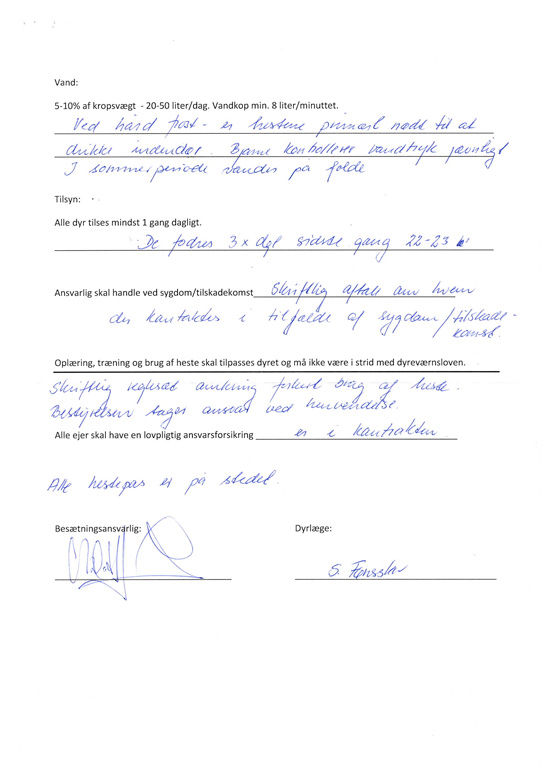 Vand:
5-10% af kropsvægt - 20-50 liter/dag. Vandkop min. 8 liter/minuttet.
Ved hård frost - er hestene primært nødt til at
drikke indendør. Bjarne kontrollerer vandtryk jævnligt
I sommerperiode vandes på folde
Tilsyn:
Alle dyr tilses mindst 1 gang dagligt.
De fodres 3 x dgl sidste gang 22-23
Ansvarlig skal handle ved sygdom/tilskadekomst Skriftlig aftale om hvem
der kontaktes i tilfælde af sygdom/tilskade-
komst.
Oplæring, træning og brug af heste skal tilpasses dyret og må ikke være i strid med dyreværnsloven.
Skriftlig regelsæt omkring forkert brug af heste.
Bestyrelsen tager ansvar ved henvendelse.
Alle ejer skal have en lovpligtig ansvarsforsikring er i kontrakten
Alle hestepas er på stedet.
Besætningsansvarlig: Dyrlæge:
S.